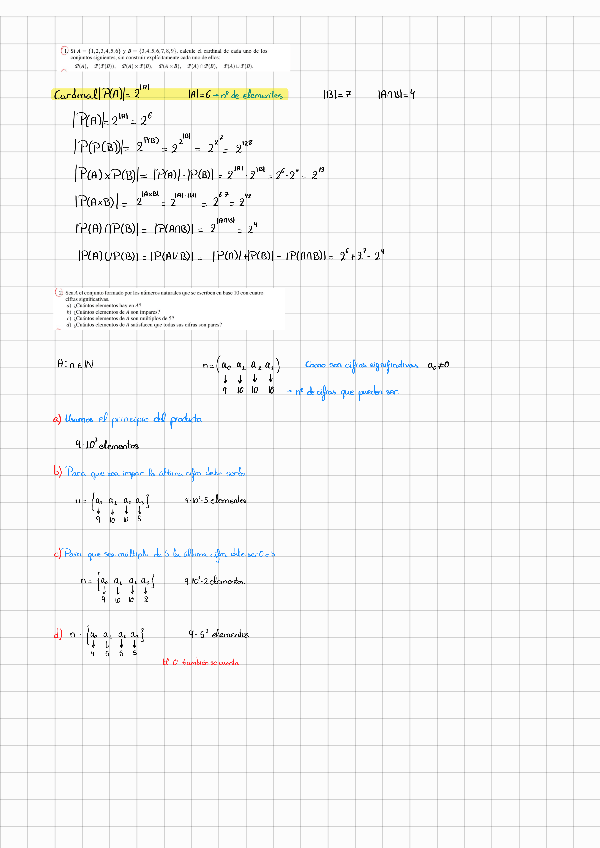 1. Si A = {1,2,3,4,5,6} y B = {3,4,5,6,7,8,9}, calcule el cardinal de cada uno de los
conjuntos siguientes, sin construir explícitamente cada uno de ellos:
P(A), P(P(B)), P(A) × P(B), P(A × B), P(A) ∩ P(B), P(A) ∪ P(B).
Cardinal |P(A)| = 2^|A| |A| = 6 → nº de elementos |B| = 7 |A∩B| = 4
|P(A)| = 2^|A| = 2^6
|P(P(B))| = 2^P(B) = 2^2^|B| = 2^2^7 = 2^128
|P(A) × P(B)| = |P(A)| · |P(B)| = 2^|A| · 2^|B| = 2^6 · 2^7 = 2^13
|P(A×B)| = 2^|A×B| = 2^|A|·|B| = 2^6·7 = 2^42
|P(A) ∩ P(B)| = |P(A∩B)| = 2^|A∩B| = 2^4
|P(A) ∪ P(B)| = |P(A∪B)| = |P(A)| + |P(B)| - |P(A∩B)| = 2^6 + 2^7 - 2^4
2. Sea A el conjunto formado por los números naturales que se escriben en base 10 con cuatro
cifras significativas.
a) ¿Cuántos elementos hay en A?
b) ¿Cuántos elementos de A son impares?
c) ¿Cuántos elementos de A son múltiplos de 5?
d) ¿Cuántos elementos de A satisfacen que todas sus cifras son pares?
A: n ∈ N n = (a₀ a₁ a₂ a₃) Como son cifras significativas a₀ ≠ 0
↓ ↓ ↓ ↓
9 10 10 10 → nº de cifras que pueden ser
a) Usamos el principio del producto
9·10³ elementos
b) Para que sea impar la última cifra debe serlo
n = [a₀ a₁ a₂ a₃] 9·10²·5 elementos
↓ ↓ ↓ ↓
9 10 10 5
c) Para que sea múltiplo de 5 la última cifra debe ser 0 o 5
n = [a₀ a₁ a₂ a₃] 9·10²·2 elementos
↓ ↓ ↓ ↓
9 10 10 2
d) n = [a₀ a₁ a₂ a₃] 4·5³ elementos
↓ ↓ ↓ ↓
4 5 5 5
el 0 también se cuenta